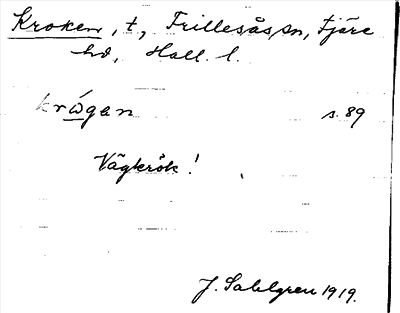 Kroken, t., Frillesås sn, Fjäre
hd, Hall. l.
krὼgan s. 89
Vägkrök!
J. Sahlgren 1919.